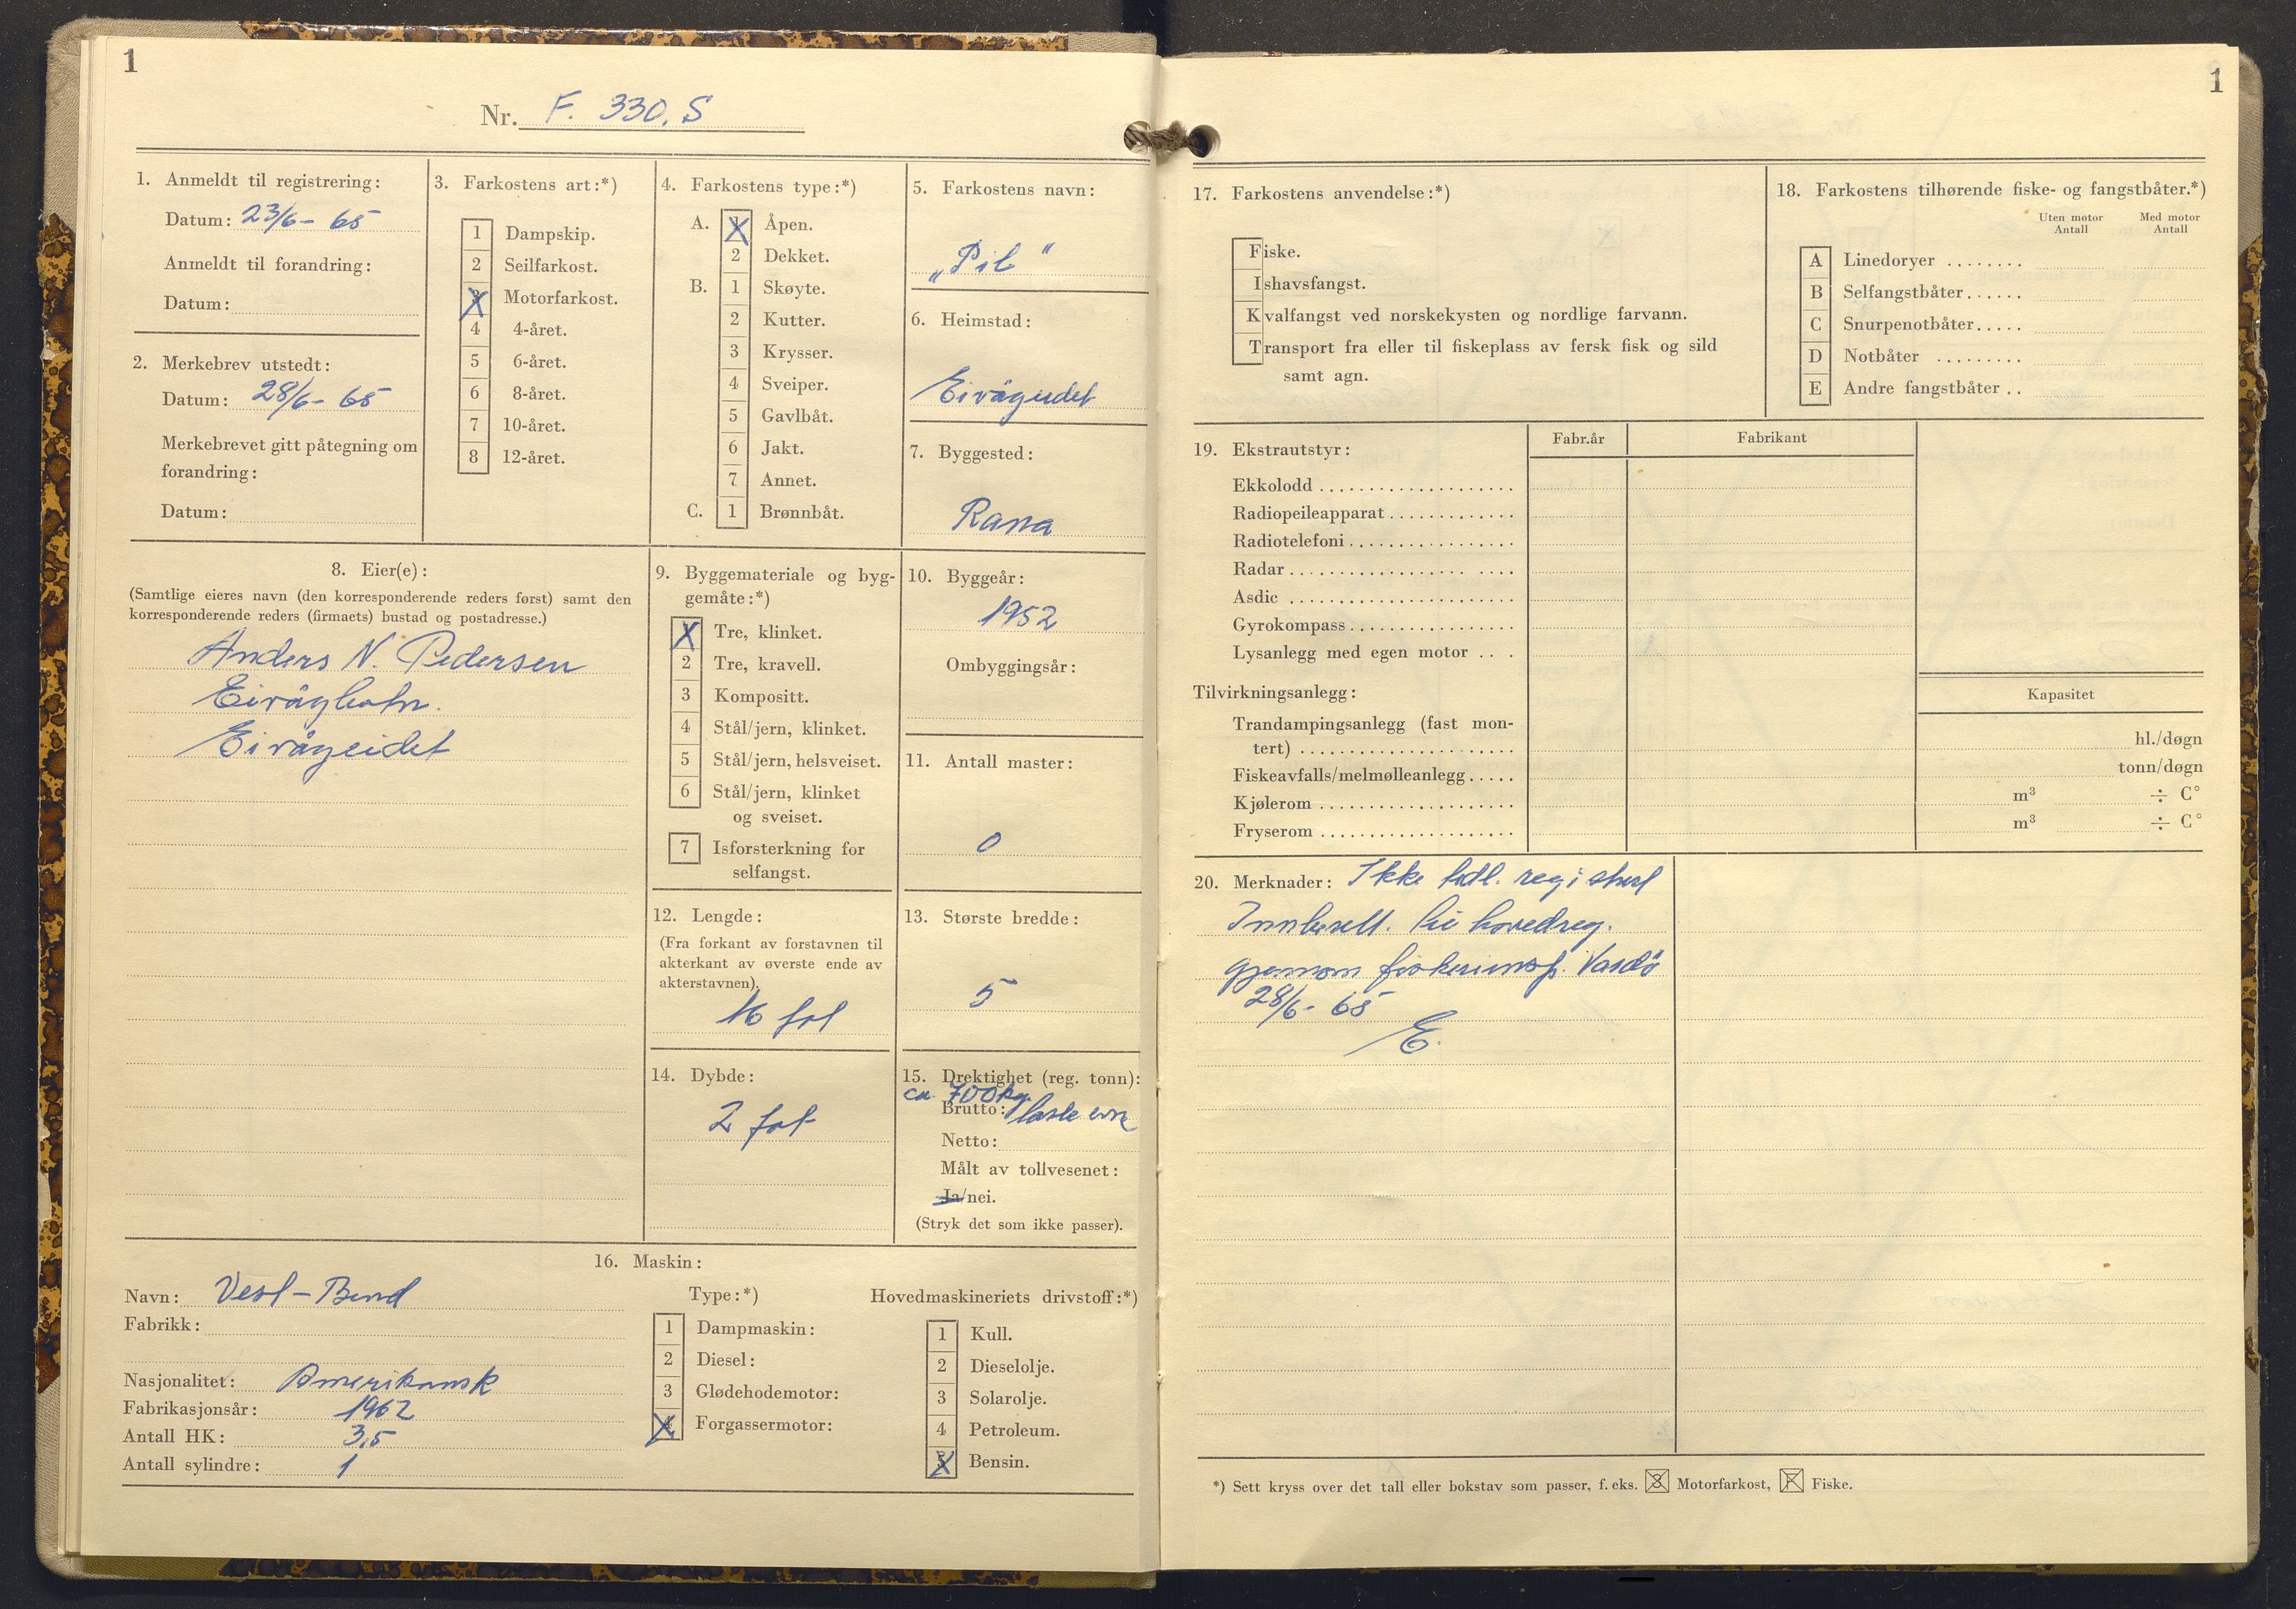 1
Nr. F. 330. S
1. Anmeldt til registrering:
Datum: 23/6- 65
Anmeldt til forandring:
Datum:
2. Merkebrev utstedt:
Datum: 28/6- 65
Merkebrevet gitt påtegning om
forandring:
Datum:
3. Farkostens art:*)
1 Dampskip.
2 Seilfarkost.
X Motorfarkost.
4 4-året.
5 6-året.
6 8-året.
7 10-året.
8 12-året.
4. Farkostens type:*)
A. X Åpen.
2 Dekket.
B. 1 Skøyte.
2 Kutter.
3 Krysser.
4 Sveiper.
5 Gavlbåt.
6 Jakt.
7 Annet.
C. 1 Brønnbåt.
5. Farkostens navn:
„Pil"
6. Heimstad:
Eivågeidet
7. Byggested:
Rana
8. Eier(e):
(Samtlige eieres navn (den korresponderende reders først) samt den
korresponderende reders (firmaets) bustad og postadresse.)
Anders N. Pedersen
Eivågbotn.
Eivågeidet
9. Byggemateriale og byg-
gemåte:*)
X Tre, klinket.
2 Tre, kravell.
3 Kompositt.
4 Stål/jern, klinket.
5 Stål/jern, helsveiset.
6 Stål/jern, klinket
og sveiset.
7 Isforsterkning for
selfangst.
10. Byggeår:
1952
Ombyggingsår:
11. Antall master:
0
12. Lengde:
(Fra forkant av forstavnen til
akterkant av øverste ende av
akterstavnen).
16 fot
13. Største bredde:
5
14. Dybde:
2 fot
15. Drektighet (reg. tonn):
ca 700 kg.
Brutto: laste evne
Netto:
Målt av tollvesenet:
Ja/nei.
(Stryk det som ikke passer).
16. Maskin:
Navn: Vest-Bend
Fabrikk:
Nasjonalitet: Amerikansk
Fabrikasjonsår: 1962
Antall HK: 3,5
Antall sylindre: 1
Type:*)
1 Dampmaskin:
2 Diesel:
3 Glødehodemotor:
X Forgassermotor:
Hovedmaskineriets drivstoff:*)
1 Kull.
2 Dieselolje.
3 Solarolje.
4 Petroleum.
X Bensin.
1
17. Farkostens anvendelse:*)
Fiske.
Ishavsfangst.
Kvalfangst ved norskekysten og nordlige farvann.
Transport fra eller til fiskeplass av fersk fisk og sild
samt agn.
18. Farkostens tilhørende fiske- og fangstbåter.*)
Uten motor Antall
Med motor Antall
A Linedoryer ........
B Selfangstbåter......
C Snurpenotbåter.....
D Notbåter .........
E Andre fangstbåter ..
19. Ekstrautstyr:
Fabr.år
Fabrikant
Ekkolodd
Radiopeileapparat
Radiotelefoni
Radar
Asdic
Gyrokompass
Lysanlegg med egen motor ...
Tilvirkningsanlegg:
Kapasitet
Trandampingsanlegg (fast mon-
tert) hl./døgn
Fiskeavfalls/melmølleanlegg..... tonn/døgn
Kjølerom m³ ÷ C°
Fryserom m³ ÷ C°
20. Merknader: Ikke tidl. registrert
Innberett. til hovedreg.
gjennom fiskeriinsp. Vardö
28/6- 65
E.
*) Sett kryss over det tall eller bokstav som passer, f. eks. 3 Motorfarkost, F Fiske.